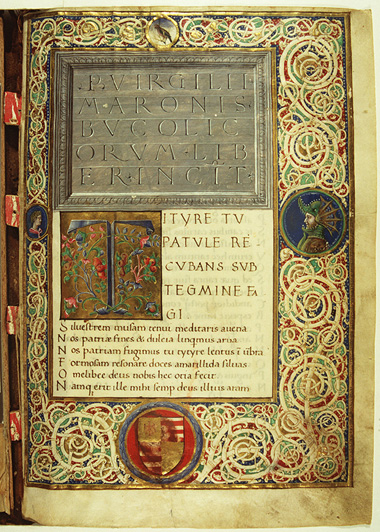 P. VIRGILII
MARONIS
BVCOLIC
ORVM · LIB
ER · INCIT ·
TITYRE TV
PATVLE RE
CVBANS SVB
TEGMINE FA
GI .
Siluestrem musam tenui meditaris auena
Nos patriae fines & dulcia linqmus arua
Nos patriam fugimus tu tytyre lentus ĩ ũbra
Formosam resonare doces amarillida siluas
O melibee deus nobis hec ocia fecit
Namq; erit ille mihi semp deus illius aram